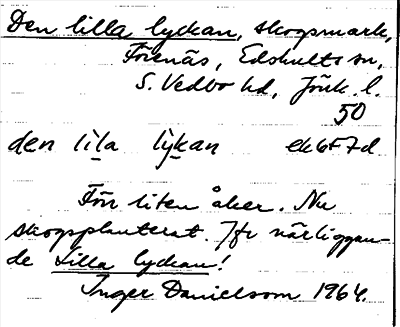 Den lilla lyckan, skogsmark,
Förenäs, Edshults sn,
S. Vedbo hd, Jönk. l.
50
den lila lykan ek6F7d
Förr liten åker. Nu
skogsplanterat. Jfr närliggan-
de Lilla lyckan!
Inger Danielsson 1964.